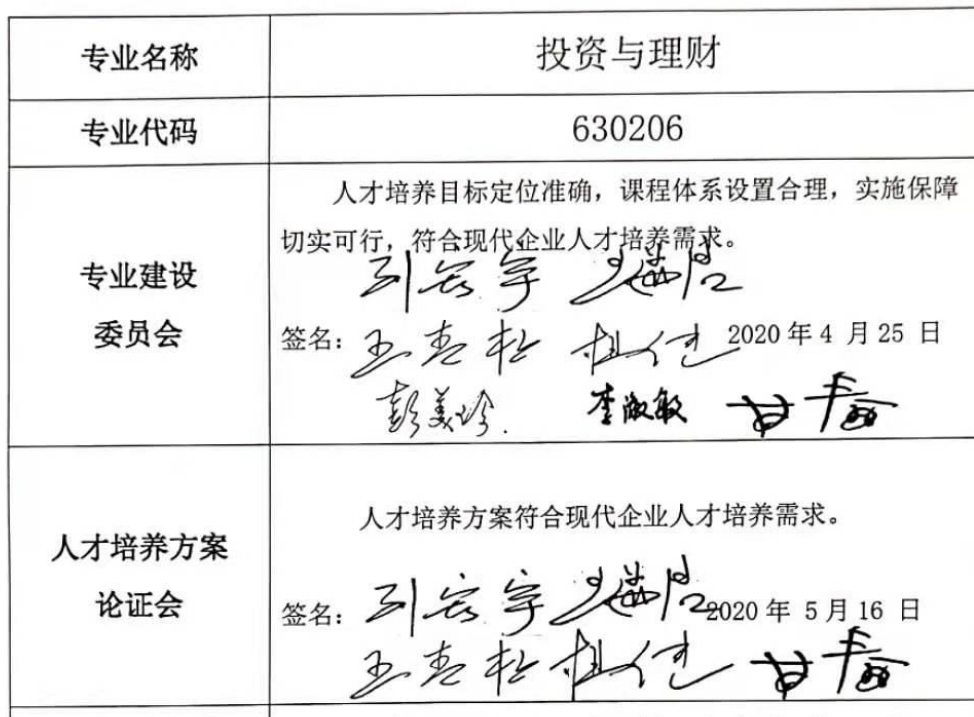 专业名称
投资与理财
专业代码
630206
专业建设
委员会
人才培养目标定位准确，课程体系设置合理，实施保障
切实可行，符合现代企业人才培养需求。
签名：
2020年4月25日
彭美玲 李淑敏
人才培养方案
论证会
人才培养方案符合现代企业人才培养需求。
签名：
2020年5月16日